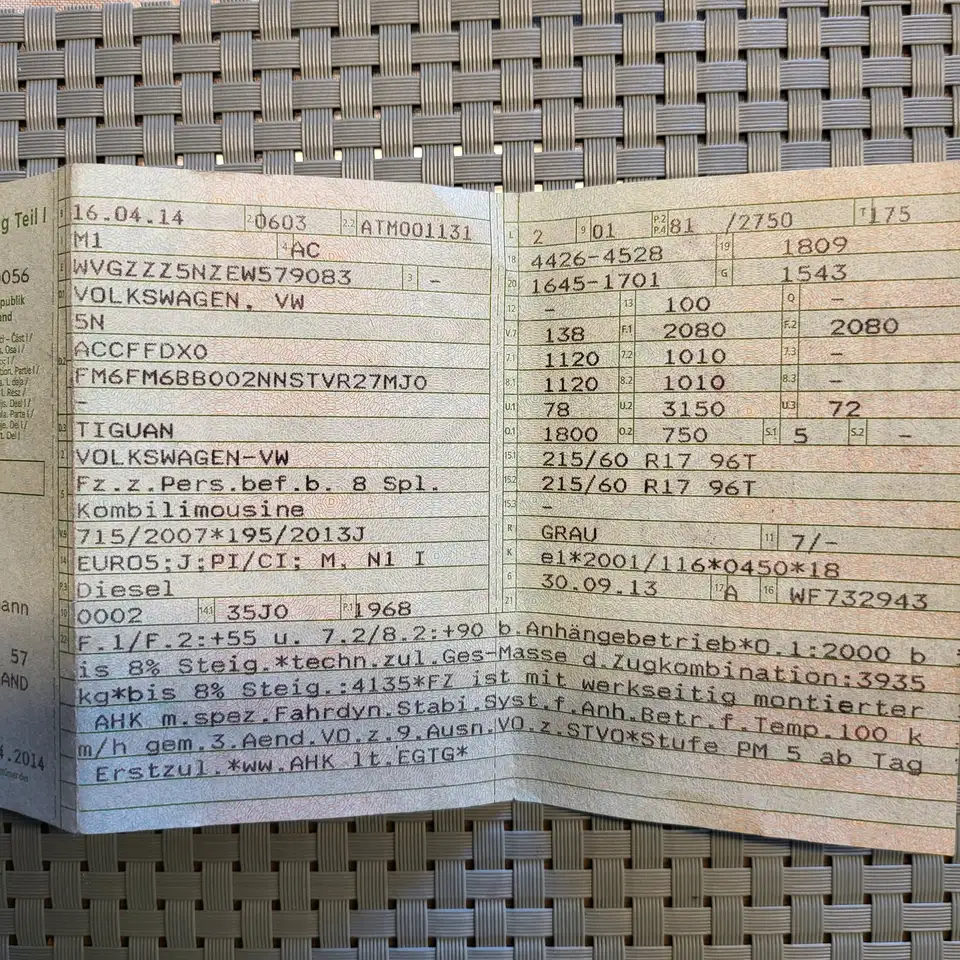 g Teil I
056
publik
nd
ann
57
AND
4.2014
B 16.04.14 2.1 0603 2.2 ATM001131
J M1 4 AC
E WVGZZZ5NZEW579083 3 –
D.1 VOLKSWAGEN, VW
5N
D.2 ACCFFDX0
FM6FM6BB002NNSTVR27MJ0
–
D.3 TIGUAN
2 VOLKSWAGEN-VW
5 Fz.z.Pers.bef.b. 8 Spl.
Kombilimousine
V.9 715/2007*195/2013J
14 EURO5;J;PI/CI; M, N1 I
P.3 Diesel
10 0002 14.1 35J0 P.1 1968
L 2 9 01 P.2 P.4 81 /2750 T 175
18 4426-4528 19 1809
20 1645-1701 G 1543
12 – 13 100 Q –
V.7 138 F.1 2080 F.2 2080
7.1 1120 7.2 1010 7.3 –
8.1 1120 8.2 1010 8.3 –
U.1 78 U.2 3150 U.3 72
O.1 1800 O.2 750 S.1 5 S.2 –
15.1 215/60 R17 96T
15.2 215/60 R17 96T
15.3 –
R GRAU 11 7/–
K e1*2001/116*0450*18
6 30.09.13 17 A 16 WF732943
21
22 F.1/F.2:+55 u. 7.2/8.2:+90 b.Anhängebetrieb*O.1:2000 b
is 8% Steig.*techn.zul.Ges-Masse d.Zugkombination:3935
kg*bis 8% Steig.:4135*FZ ist mit werkseitig montierter
AHK m.spez.Fahrdyn.Stabi.Syst.f.Anh.Betr.f.Temp.100 k
m/h gem.3.Aend.VO.z.9.Ausn.VO.z.STVO*Stufe PM 5 ab Tag
Erstzul.*ww.AHK lt.EGTG*